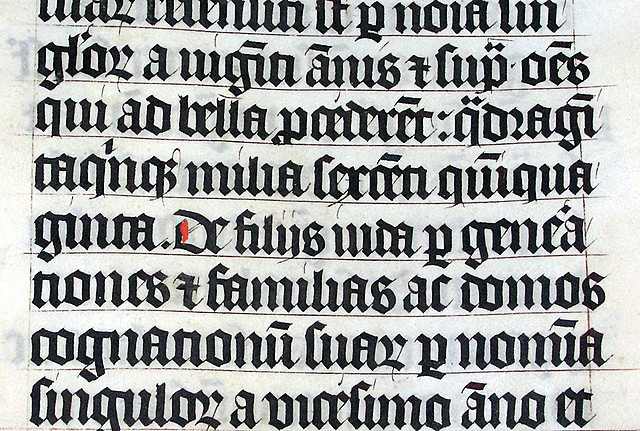 suaꝝ recensiti st̄ ꝑ noīa sin
gl'oꝝ a uigīti ānis ⁊ sup̄ · oēs
qui ad bella ꝓcederēt : q̈dragī
taq'nqꝫ milia sexcēti qⁱnqua
ginta. De filijs iuda ꝑ gen̄ea
tiones ⁊ familias ac domos
cognationū suaꝝ ꝑ nomīa
singuloꝝ a vicesimo āno et